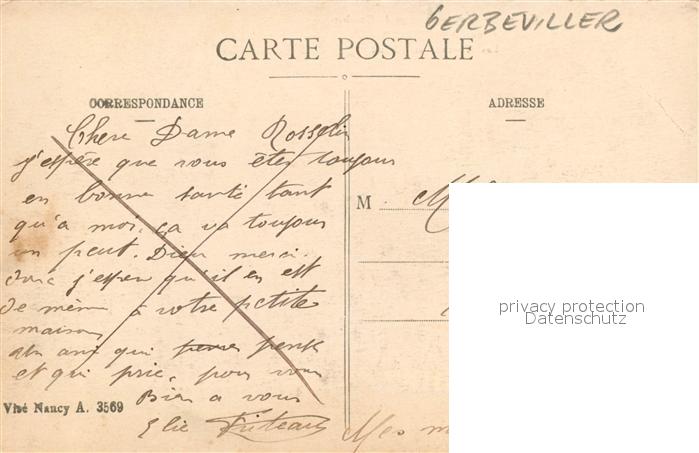 GERBEVILLER
CARTE POSTALE
CORRESPONDANCE
ADRESSE
Chere Dame Rosselin
j'espère que vous êtes toujours
en bonne santé tant
M
qu'a moi, ça va toujours
un peut. Dieu merci.
donc j'espere qu'il en est
de même à votre petite
privacy protection
Datenschutz
maison
un ami qui pense
et qui prie, pour vous
Bien a vous
Visé Nancy A. 3569
Elie
Mes